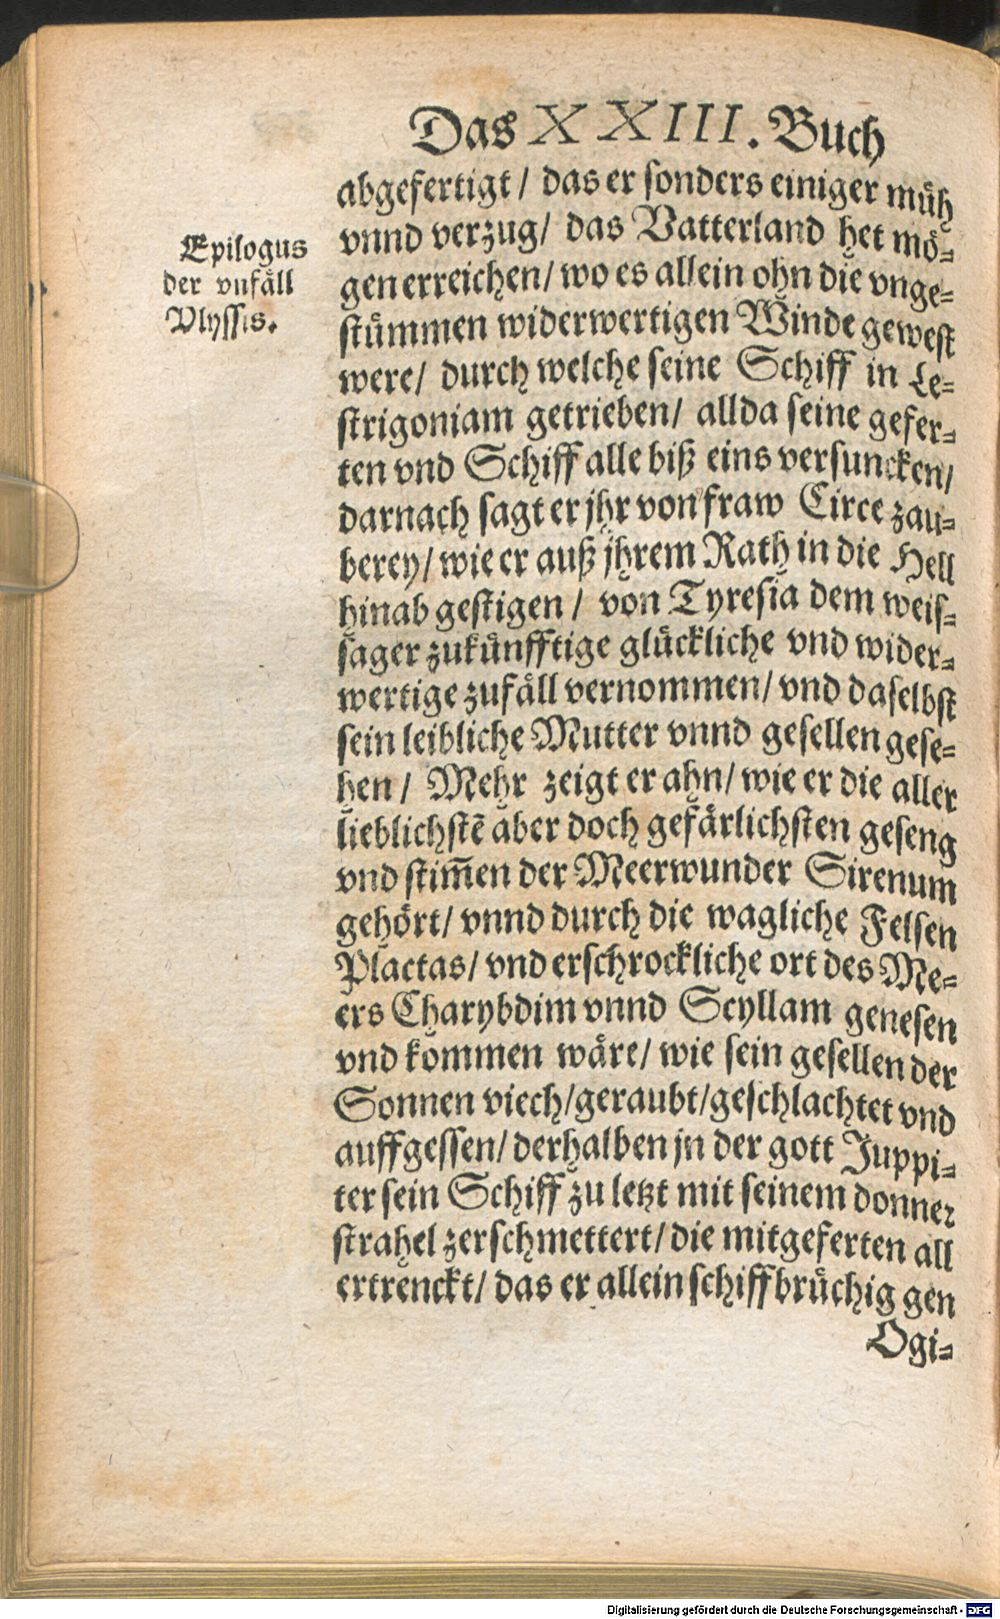 Das XXIII. Buch
abgefertigt / das er sonders einiger müh
vnnd verzug / das Vatterland het mö-
gen erreichen / wo es allein ohn die vnge-
stümmen widerwertigen Winde gewest
were / durch welche seine Schiff in Le-
strigoniam getrieben / allda seine gefer-
ten vnd Schiff alle biß eins versuncken /
darnach sagt er jhr von fraw Circe zau-
berey / wie er auß jhrem Rath in die Hell
hinab gestigen / von Tyresia dem weis-
sager zukünfftige glückliche vnd wider-
wertige zufäll vernommen / vnd daselbst
sein leibliche Mutter vnnd gesellen gese-
hen / Mehr zeigt er ahn / wie er die aller
lieblichstē aber doch gefärlichsten geseng
vnd stim̄en der Meerwunder Sirenum
gehört / vnnd durch die wagliche Felsen
Plactas / vnd erschrockliche ort des Me-
ers Charybdim vnnd Scyllam genesen
vnd kommen wäre / wie sein gesellen der
Sonnen viech / geraubt / geschlachtet vnd
auffgessen / derhalben jn der gott Juppi-
ter sein Schiff zu letzt mit seinem donner
strahel zerschmettert / die mitgeferten all
ertrenckt / das er allein schiffbrüchig gen
Ogi-
Epilogus
der vnfäll
Vlyssis.
Digitalisierung gefördert durch die Deutsche Forschungsgemeinschaft - DFG